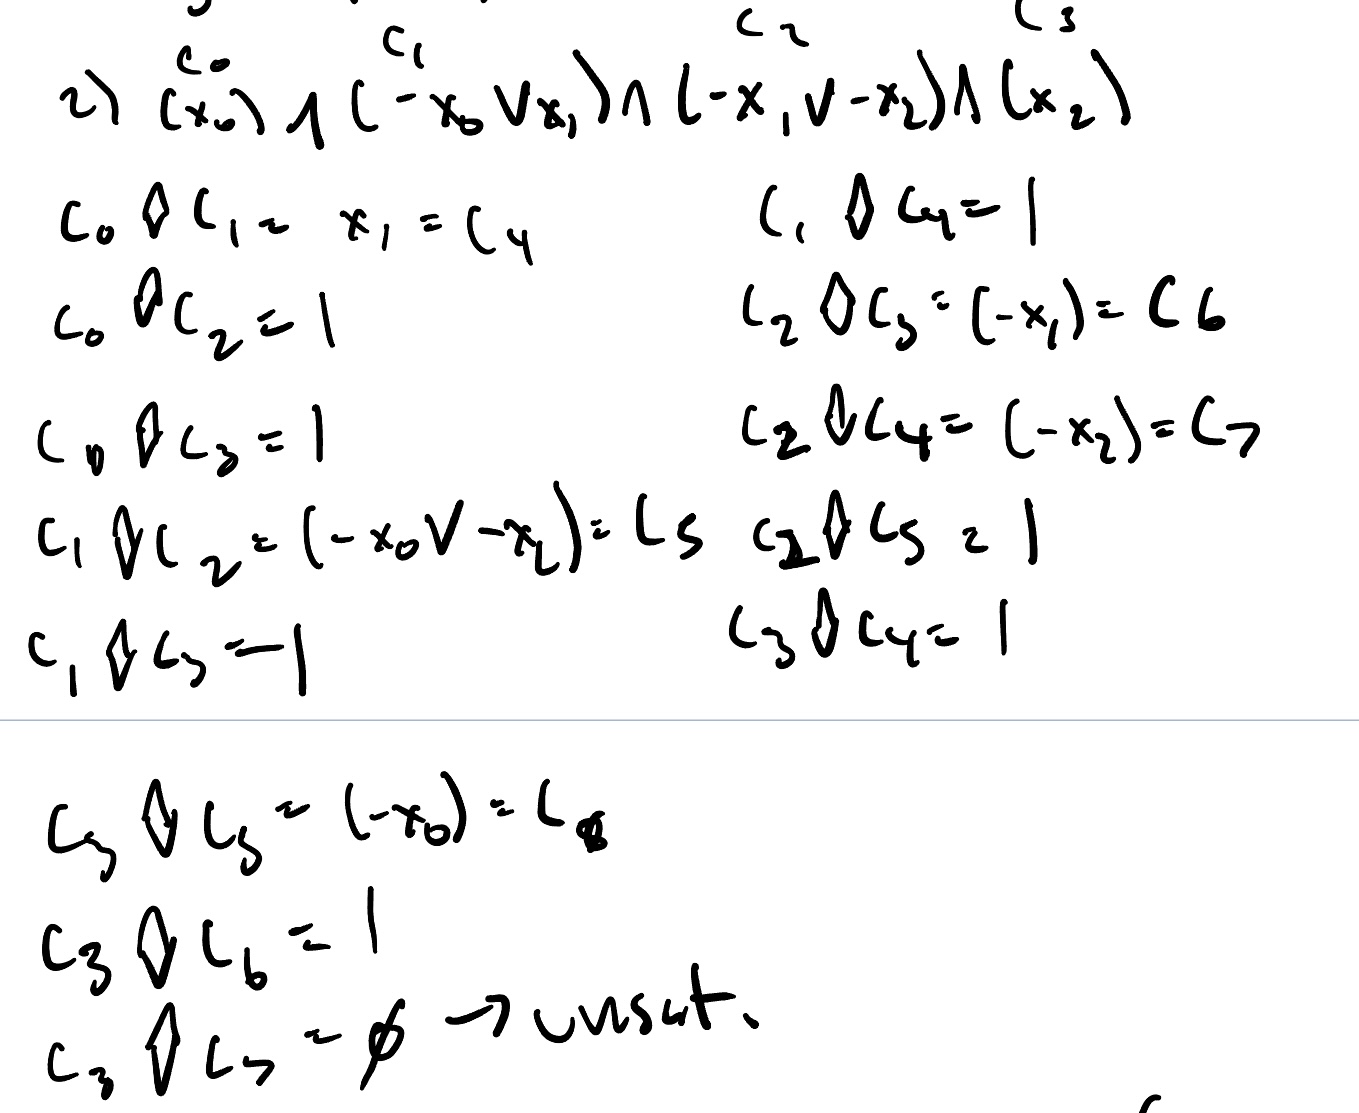 C0 C1 C2 C3
2) (x0) ∧ (-x0 ∨ x1) ∧ (-x1 ∨ -x2) ∧ (x2)
C0 ◊ C1 = x1 = C4
C0 ◊ C2 = 1
C0 ◊ C3 = 1
C1 ◊ C2 = (-x0 ∨ -x2) = C5
C1 ◊ C3 = 1
C1 ◊ C4 = 1
C2 ◊ C3 = (-x1) = C6
C2 ◊ C4 = (-x2) = C7
C2 ◊ C5 = 1
C3 ◊ C4 = 1
C3 ◊ C5 = (-x0) = C8
C3 ◊ C6 = 1
C3 ◊ C7 = ∅ → unsat.